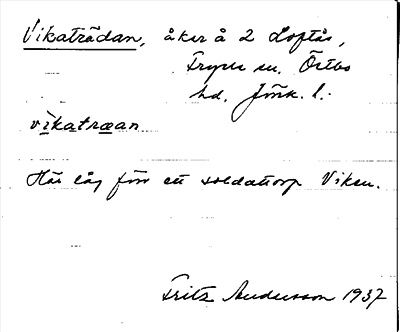 Vikaträdan, åker å 2 Loftås,
Fryele sn. Östbo
hd. Jönk. l.
vikatræan
Här låg förr ett soldattorp Viken.
Fritz Andersson 1937